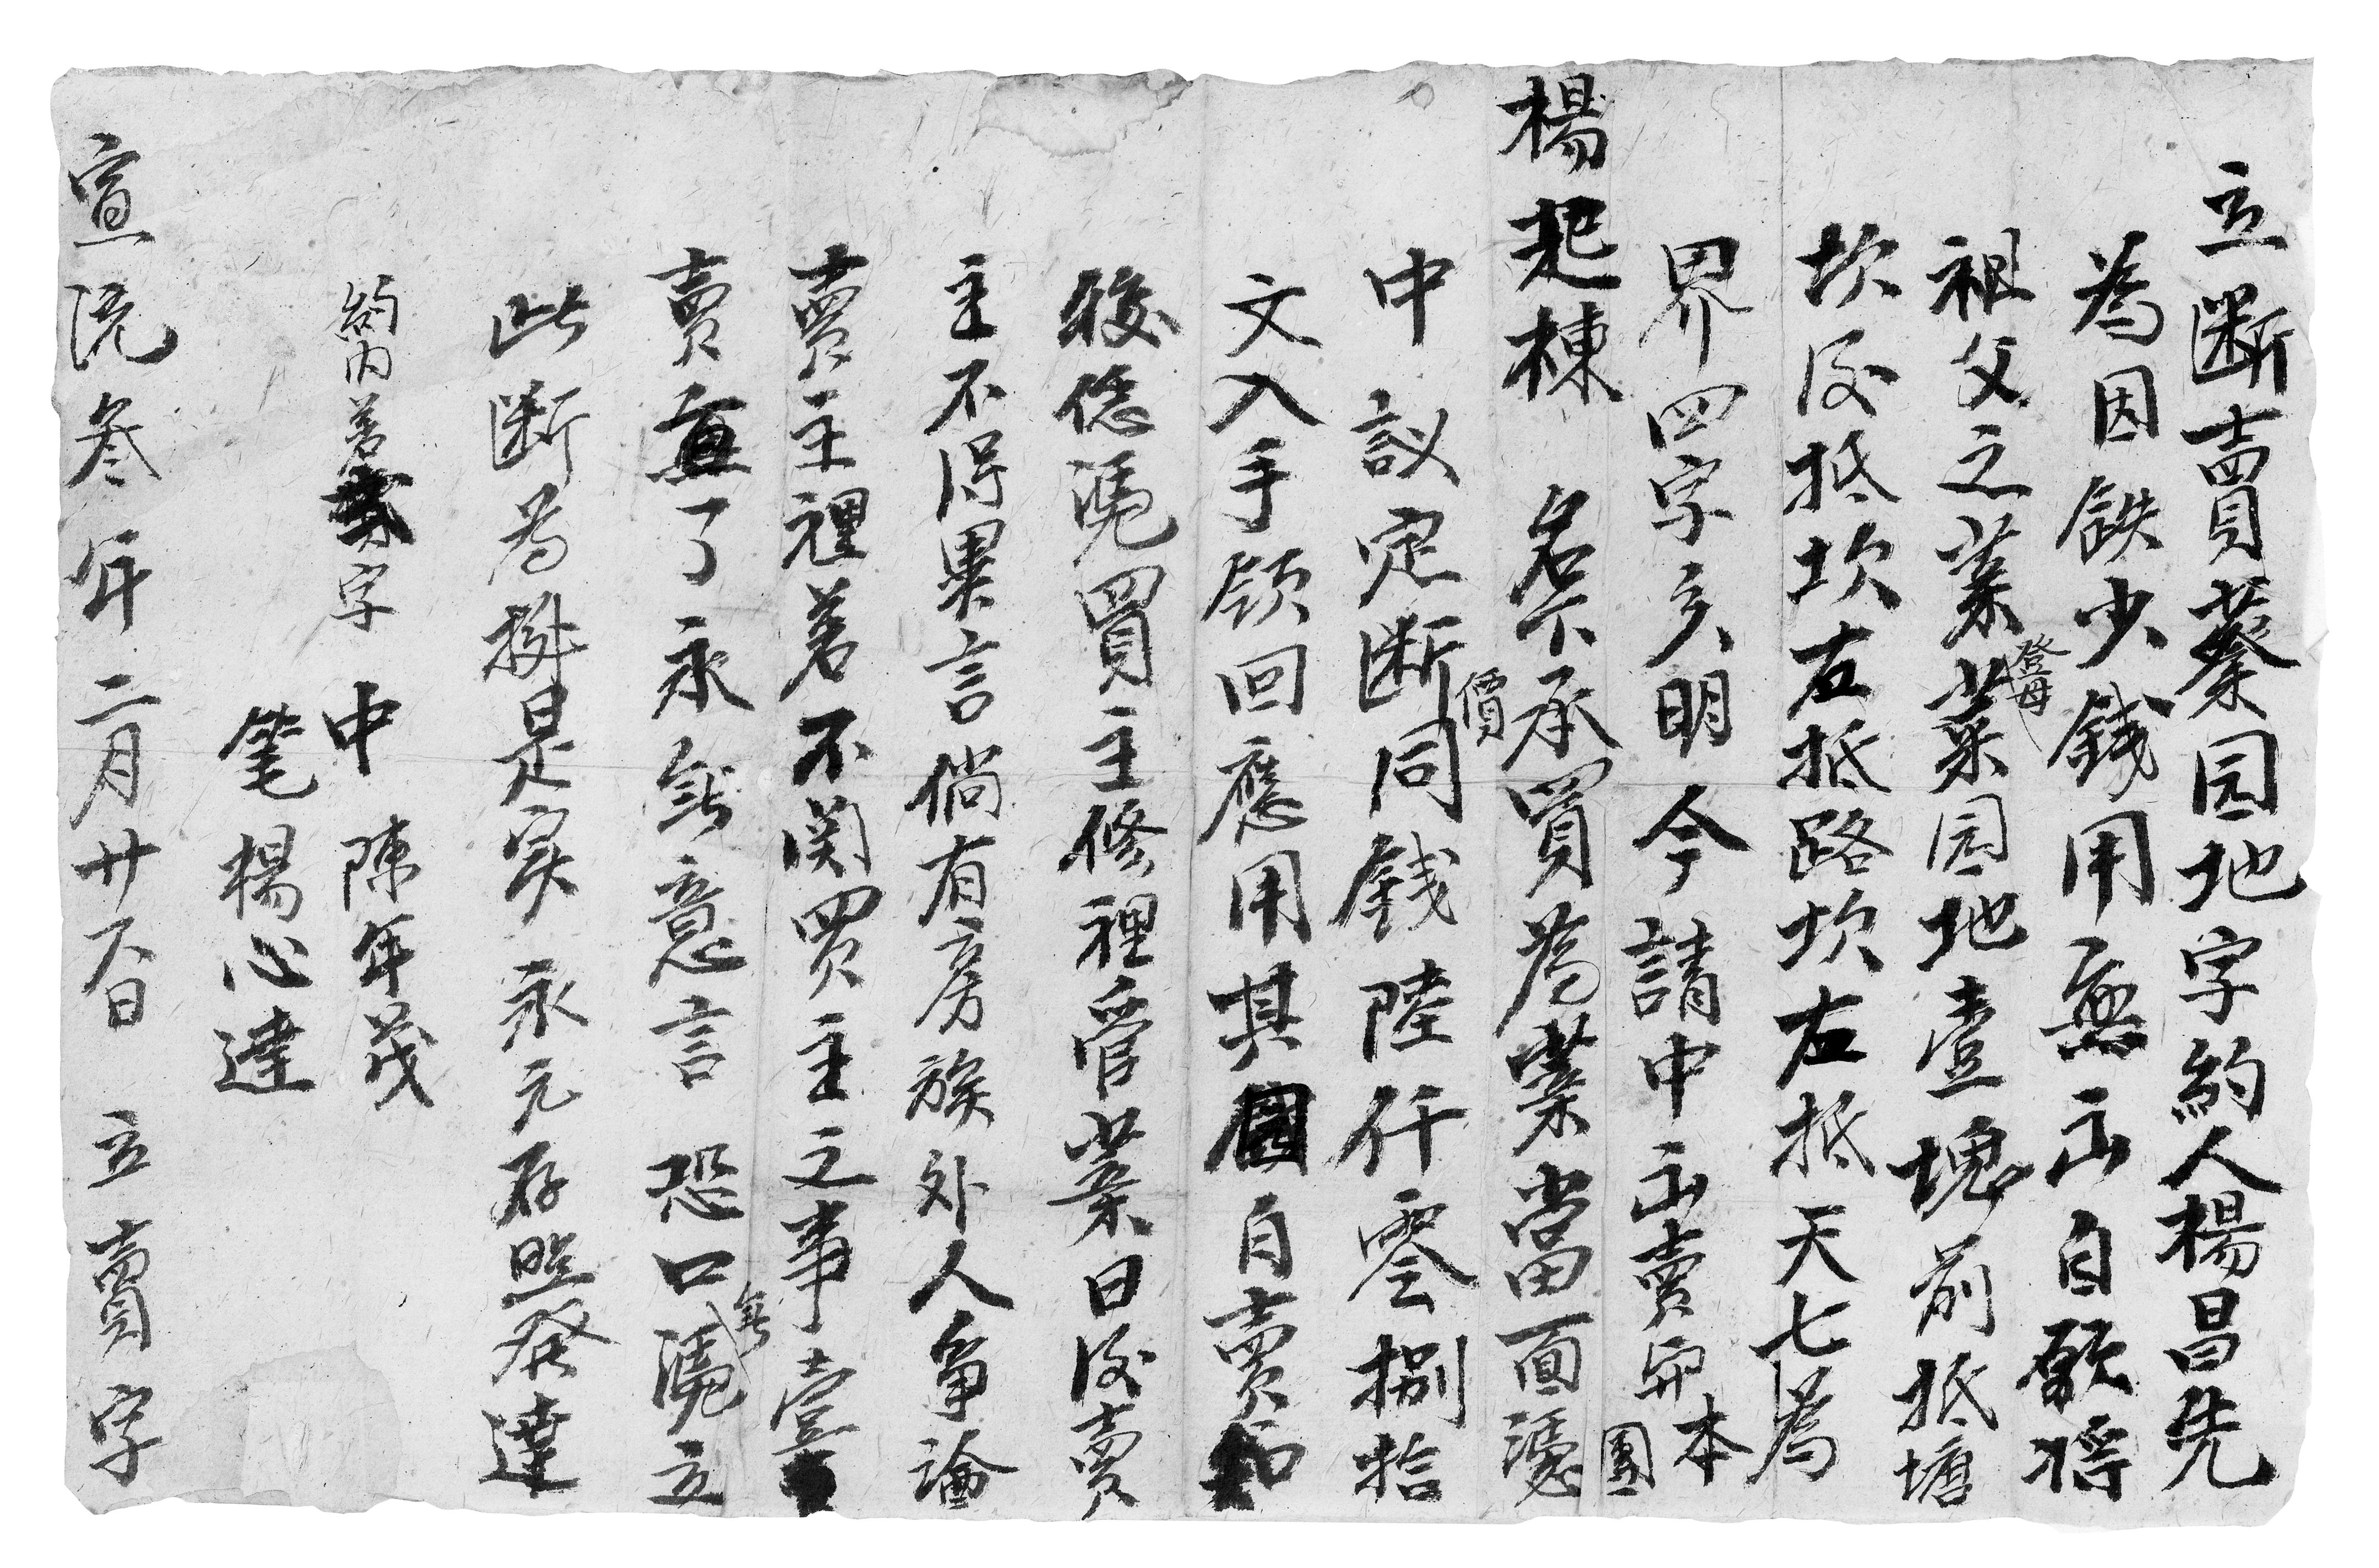 立断賣蔡园地字約人楊昌先
為因鉄少錢用無出自願将
祖父之業登母菜园地壹塊前抵塘
坎後抵坎左抵路坎右抵天七為
界四字分明今請中出賣與本團
楊起棟名下承買為業當面憑
中議定断價同錢陸仟零捌拾
文入手領回應用其園自賣
後憑買主修理管業日後賣
主不得異言倘有房族外人爭論
賣主理若不関買主之事壹
賣了永無意言恐口無憑立
此断為據是实永元存照發達
約內若字 中 陳年茂
筆楊心達
宣統叁年二月廿六日 立賣字